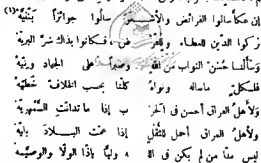 إن عكا سالوا الفرائض والأشـ ـعر سالوا جوائزاً بثنيه (١)
تركوا الدين للعطاء وللفر ض، فكانوا بذاك شر البريه
وسألنا حسن الثواب من الله وصبراً على الجهاد ونيه
فلكل ماساله ونواه كلنا يحسب الخلاف خطيه
ولأهل العراق أحسن في الحر ب إذا ما تدانت السمهريه
ولأهل العراق أحمل للثقل إذا عمت البلاد بليه
ليس منا من لم يكن في الله وليا ياذا الولا والوصيه